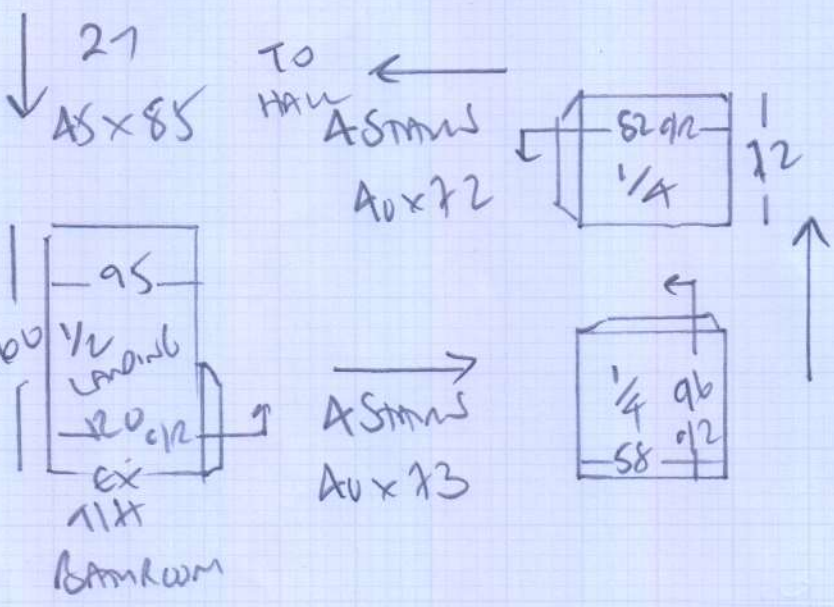 21
45 x 85
TO
HALL
4 STAIRS
40 x 72
82 o/r
1/4
72
95
60
1/2
LANDING
120 o/r
EX
BATHROOM
4 STAIRS
40 x 73
1/4
96
o/r
58